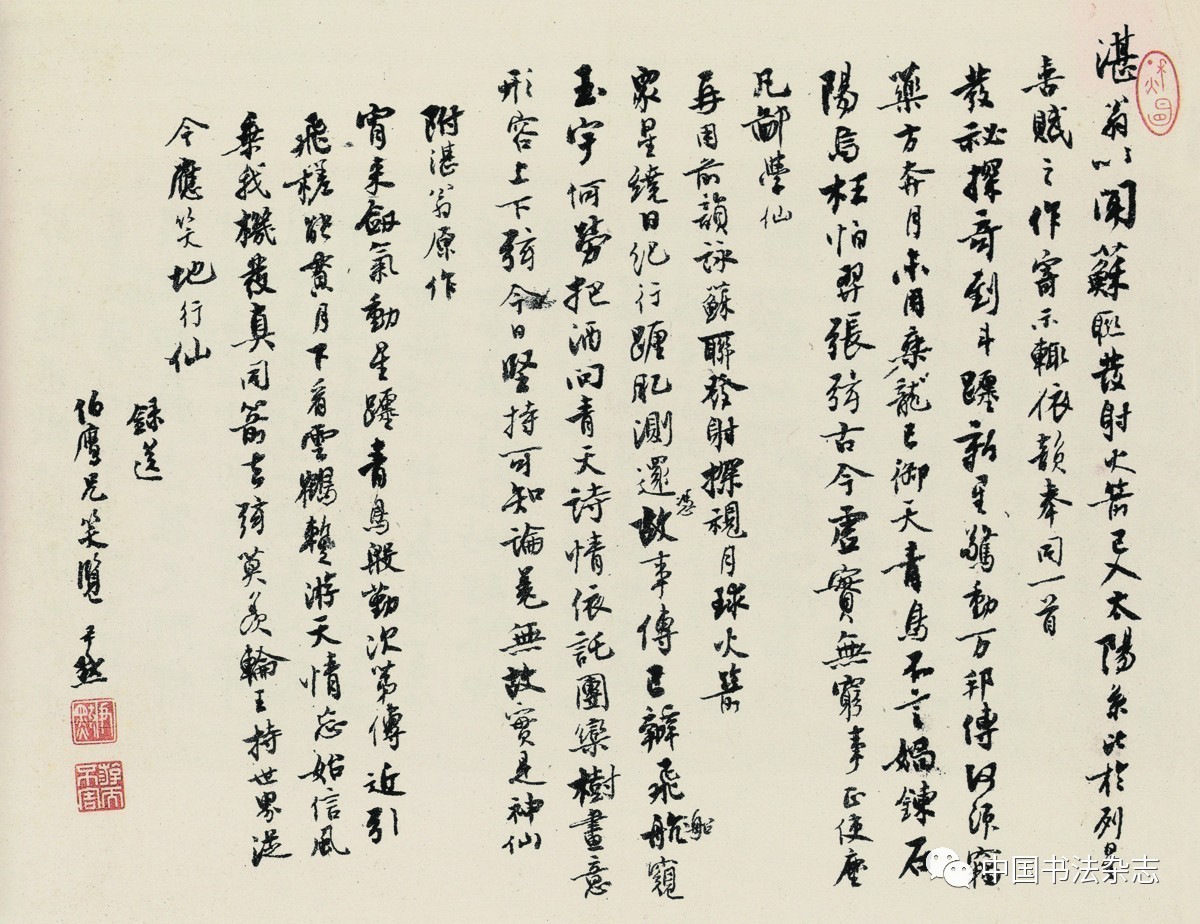 湛翁以闻蘇联发射火箭已入太陽系比於列星
喜賦之作寄示輒依韻奉同一首
发秘探奇到斗躔新星驚動万邦傳何須竊
藥方奔月不用乘龍已御天青鳥不言媧鍊石
陽烏枉怕羿張弦古今虛實無窮事正使塵
凡鄙學仙
再用前韻詠蘇联發射探視月球火箭
衆星繞日紀行躔肊測還憑故事傳已辦飛船窺
玉宇何勞把酒问青天詩情依託團欒樹畫意
形容上下弦今日堅持可知論羌無故實是神仙
附湛翁原作
宵来劍氣動星躔青鳥殷勤次第傳近引
飛槎能貫月下看雲鶴輕游天情忘始信風
乗我機發真同箭去弦莫羡輪王持世界從
今應笑地行仙
録送
伯鷹兄笑覽 尹默
中国书法杂志